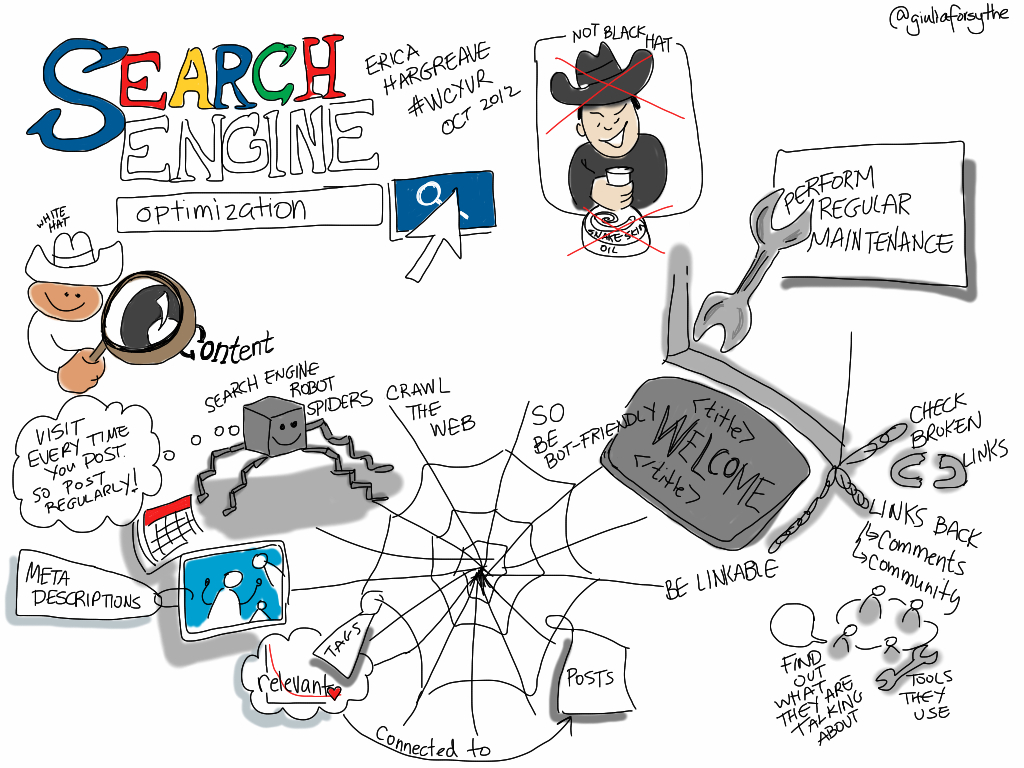 @giuliaforsythe
SEARCH
ENGINE
optimization
ERICA
HARGREAVE
#WCYVR
OCT 2012
NOT BLACK HAT
SNAKE SKIN
OIL
PERFORM
REGULAR
MAINTENANCE
WHITE
HAT
Content
SEARCH ENGINE
ROBOT
SPIDERS
CRAWL
THE
WEB
SO
BE
BOT-FRIENDLY
<title>
WELCOME
</title>
CHECK
BROKEN
LINKS
VISIT
EVERY TIME
YOU POST.
SO POST
REGULARLY!
LINKS BACK
Comments
Community
META
DESCRIPTIONS
BE LINKABLE
TAGS
relevant
POSTS
Connected to
FIND
OUT
WHAT
THEY ARE
TALKING
ABOUT
TOOLS
THEY
USE